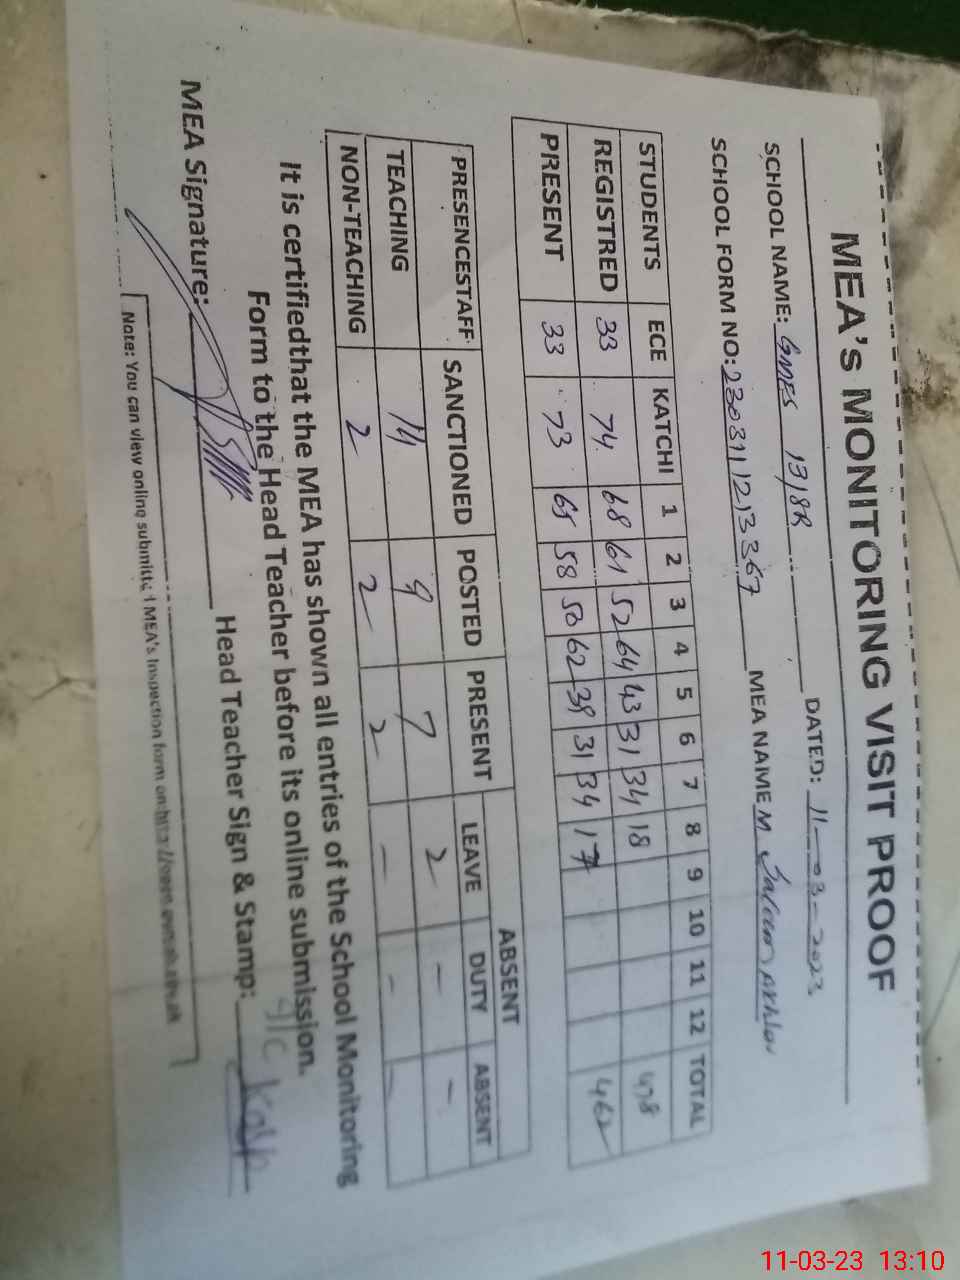 MEA's MONITORING VISIT PROOF
SCHOOL NAME: GMES 131/8R DATED: 11-03-2023
SCHOOL FORM NO: 230311213367 MEA NAME M. Saleem Akhtar
STUDENTS ECE KATCHI 1 2 3 4 5 6 7 8 9 10 11 12 TOTAL
REGISTRED 33 74 68 61 52 64 43 31 34 18 478
PRESENT 33 73 65 58 50 62 39 31 34 17 462
PRESENCESTAFF SANCTIONED POSTED PRESENT ABSENT
LEAVE DUTY ABSENT
TEACHING 14 9 7 2 - -
NON-TEACHING 2 2 2 - - -
It is certifiedthat the MEA has shown all entries of the School Monitoring
Form to the Head Teacher before its online submission.
MEA Signature: Head Teacher Sign & Stamp:
Note: You can view online submitted MEA's Inspection form on
11-03-23 13:10